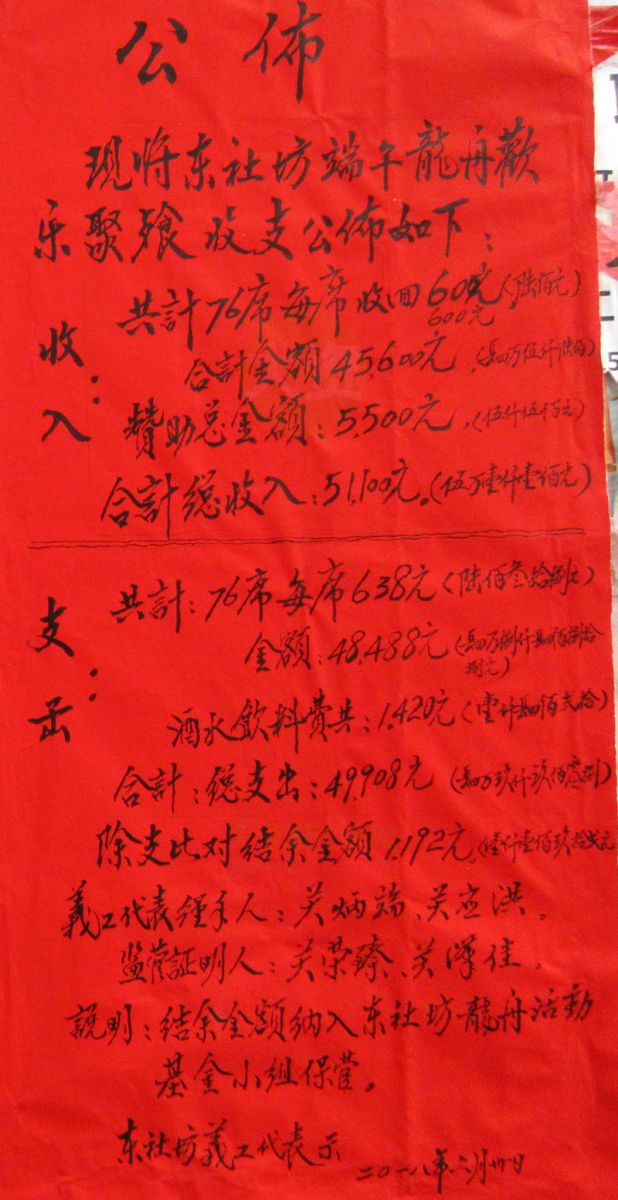 公佈
現将东社坊端午龍舟歡
乐聚飱收支公佈如下：
收入：
共計76席每席收回600元（陆佰元）
600元
合計金額45,600元（肆万伍仟陆佰）
贊助总金額：5,500元（伍仟伍佰元）
合計總收入：51,100元。（伍万壹仟壹佰元）
支出：
共計：76席每席638元（陆佰叁拾捌元）
金額：48,488元（肆万捌仟肆佰捌拾
捌元）
酒水飲料費共：1,420元（壹仟肆佰贰拾）
合計：總支出：49,908元（肆万玖仟玖佰零捌）
除支比对结余金额1,192元。（壹仟壹佰玖拾贰元
義工代表經手人：关炳端、关应洪。
监管証明人：关荣臻、关泽佳。
説明：结余金额纳入东社坊龍舟活動
基金小组保管。
东社坊義工代表示
二〇一八年六月卅日